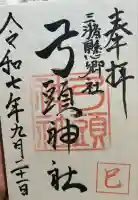 奉拝
三潴懸郷社
弓頭神社
令和七年九月二十一日
巳